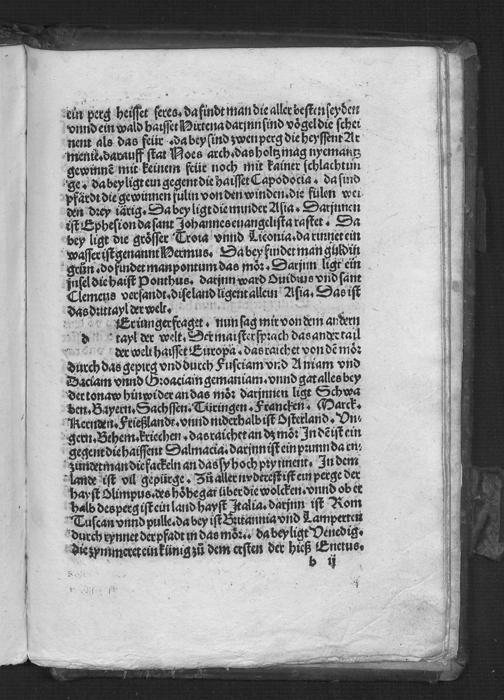 ein perg heisset seres. da findt man die aller besten seyden
vnnd ein wald haisset Hirtena darjnn sind vögel die schei
nent als das feür. da bey sind zwen perg die heyssent Ar
menie. darauff stat Noes arch. das holtz mag nyemantz
gewinnē mit keinem feür noch mit kainer schlachtun
ge. da bey ligt ein gegent die haisset Capodocia. da sind
pfärdt die gewinnen fulin von den winden. die fülen wei
den drey iärig. Da bey ligt die munder Asia. Darjnnen
ist Ephesion da sant Johannes euangelista rastet. Da
bey ligt die grösser Troia vnnd Liconia. da rinnet ein
wasser ist genannt Hermus. Da bey findet man guldin
grün. do findet man pontum das mör. Darjnn ligt ein
jnsel die haist Ponthus. darjnn ward Ouidius vnd sant
Clemens versandt. dise land ligent all ein Asia. Das ist
das drittayl der welt.
Er iünger fraget. nun sag mir von dem andern
d tayl der welt. Der maister sprach das ander tail
der welt haisset Europa. das raichet von dē mör
durch das gepirg vnd durch Fusciam vnd Aniam vnd
Daciam vnnd Groaciam gemaniam. vnnd gat alles bey
der tonaw hin wider an das mör darjnnen ligt Schwa
ben. Bayern. Sachssen. Türingen. Francken. Marck.
Kernden. Frießlandt. vnnd niderhalb ist Osterland. Vn-
gern. Behem. kriechen. das raichet an dz mör In dē ist ein
gegent die haissent Salmacia. darjnn ist ein prunn da en-
zündet man die fackeln an das sy hoch prynnent. In dem
lande ist vil gepürge. Zů aller nyderest ist ein perge der
hayst Olimpus. des höhe gat über die wolcken. vnnd ober
halb des perg ist ein land hayst Italia. darjnn ist Rom
Tuscan vnnd pulle. da bey ist Britannia vnd Lamperten
durch rynnet der pfadt in das mör. da bey ligt Venedig.
die zymmeret ein künig zů dem ersten der hieß Enetus.
b ij